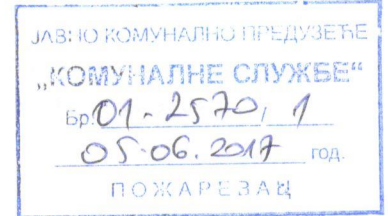 ЈАВНО КОМУНАЛНО ПРЕДУЗЕЋЕ
„КОМУНАЛНЕ СЛУЖБЕ“
Бр. 01-2570/1
05.06.2017 год.
ПОЖАРЕВАЦ